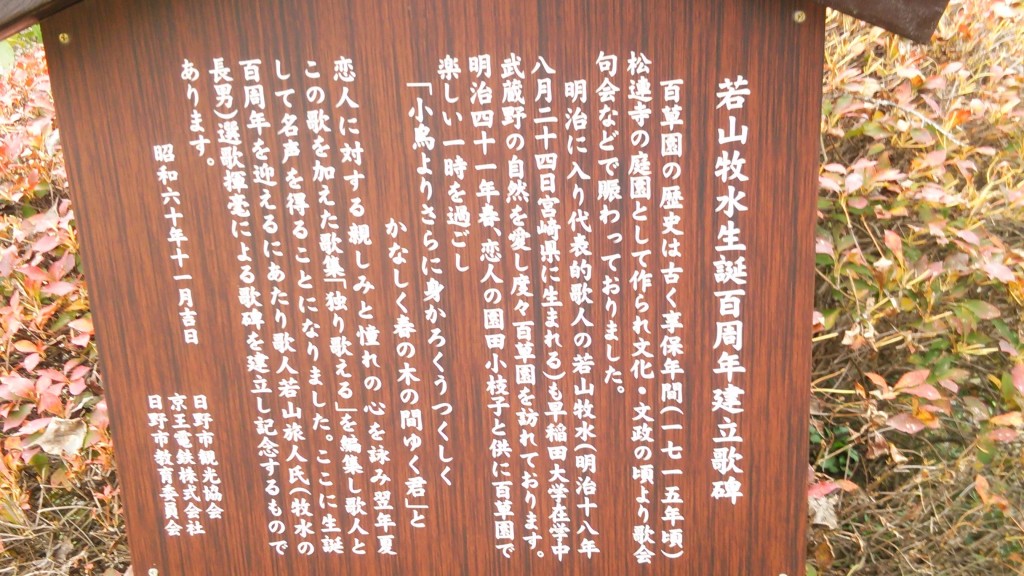 若山牧水生誕百周年建立歌碑
百草園の歴史は古く享保年間(一七一五年頃)
松連寺の庭園として作られ文化・文政の頃より歌会
句会などで賑わっておりました。
明治に入り代表的歌人の若山牧水(明治十八年
八月二十四日宮崎県に生まれる)も早稲田大学在学中
武蔵野の自然を愛し度々百草園を訪れております。
明治四十一年春、恋人の園田小枝子と供に百草園で
楽しい一時を過ごし
「小鳥よりさらに身かろくうつくしく
かなしく春の木の間ゆく君」と
恋人に対する親しみと憧れの心を詠み翌年夏
この歌を加えた歌集「独り歌える」を編集し歌人と
して名声を得ることになりました。ここに生誕
百周年を迎えるにあたり歌人若山旅人氏(牧水の
長男)選歌揮毫による歌碑を建立し記念するもので
あります。
昭和六十年十一月吉日
日野市観光協会
京王電鉄株式会社
日野市教育委員会